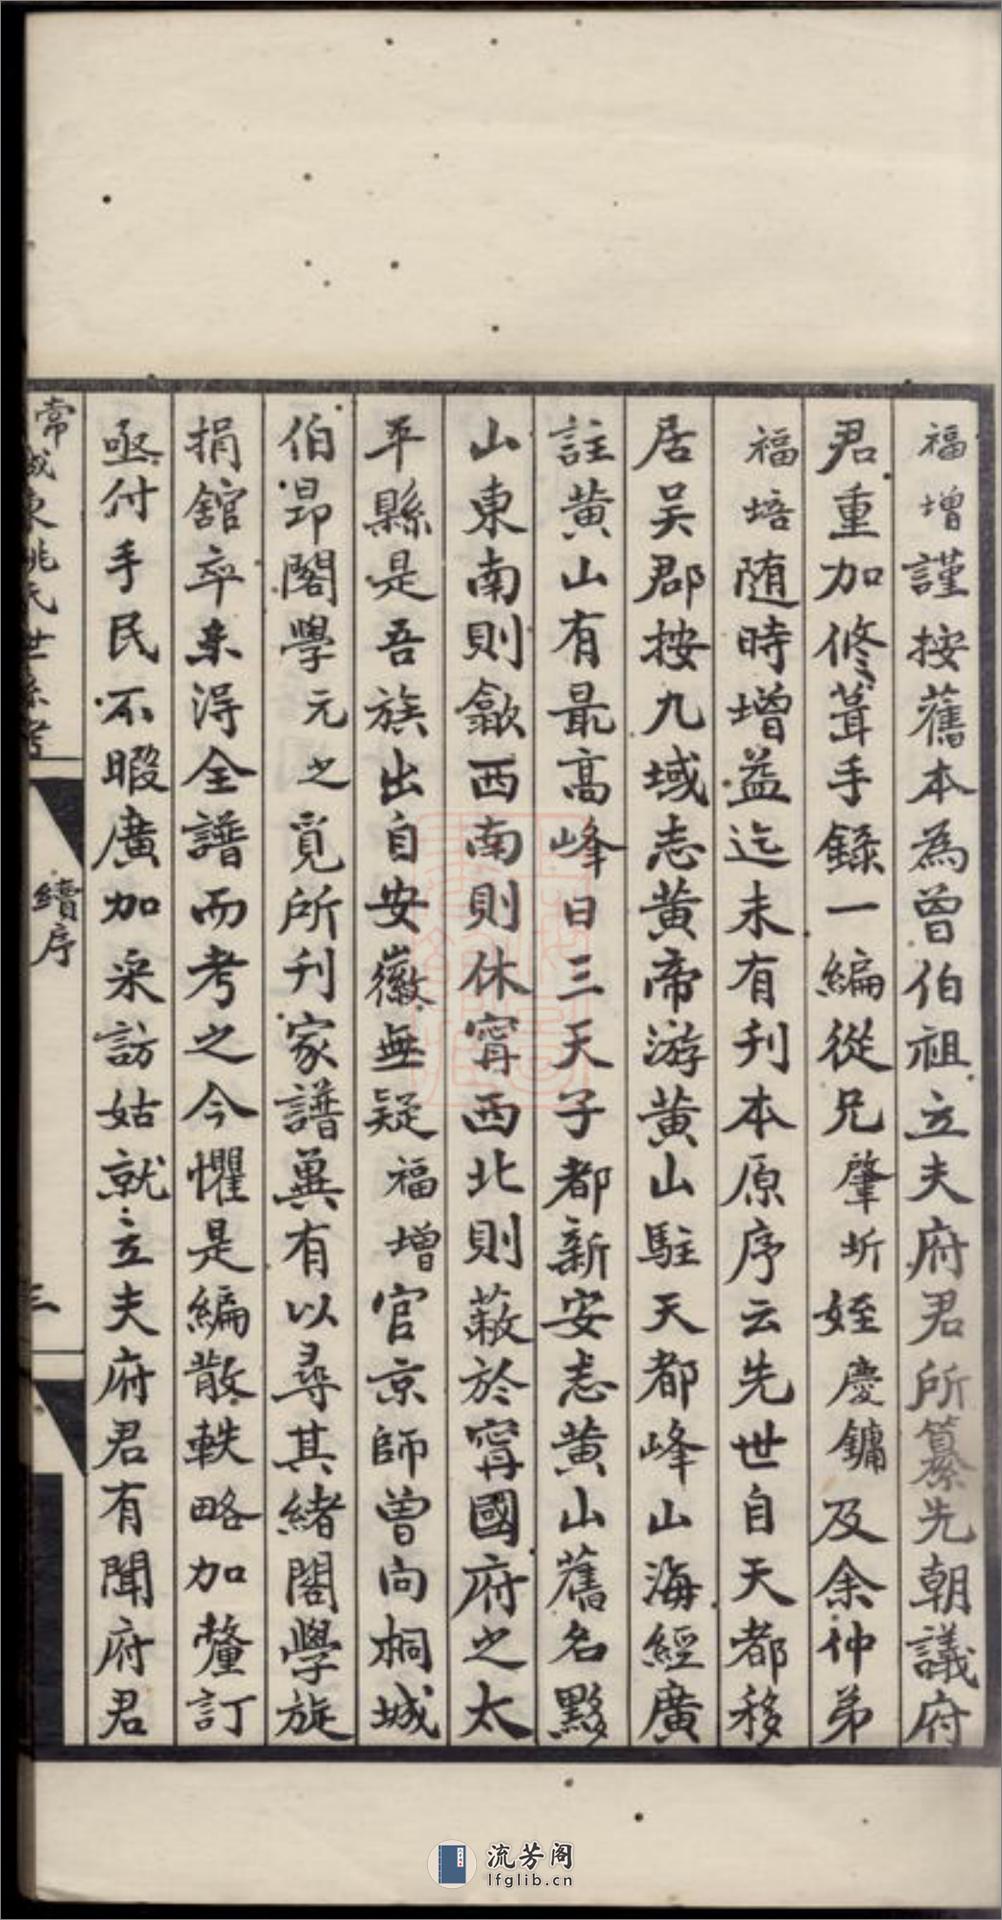 福增謹按舊本為曾伯祖立夫府君所纂先朝議府
君重加修葺手錄一編從兄肇圻姪慶鏞及余仲弟
福培随時增益迄未有刊本原序云先世自天都移
居吴郡按九域志黄帝游黄山駐天都峰山海經廣
註黄山有最高峰曰三天子都新安志黄山舊名黟
山東南則歙西南則休甯西北則蔽於甯國府之太
平縣是吾族出自安徽無疑福增官京師曾向桐城
伯昂閣學元之覓所刊家譜冀有以尋其緒閣學旋
捐館卒未得全譜而考之今懼是編散軼略加釐訂
亟付手民不暇廣加采訪姑就立夫府君有聞府君
常城東姚氏世系考
續序
三
流芳阁
lfglib.cn